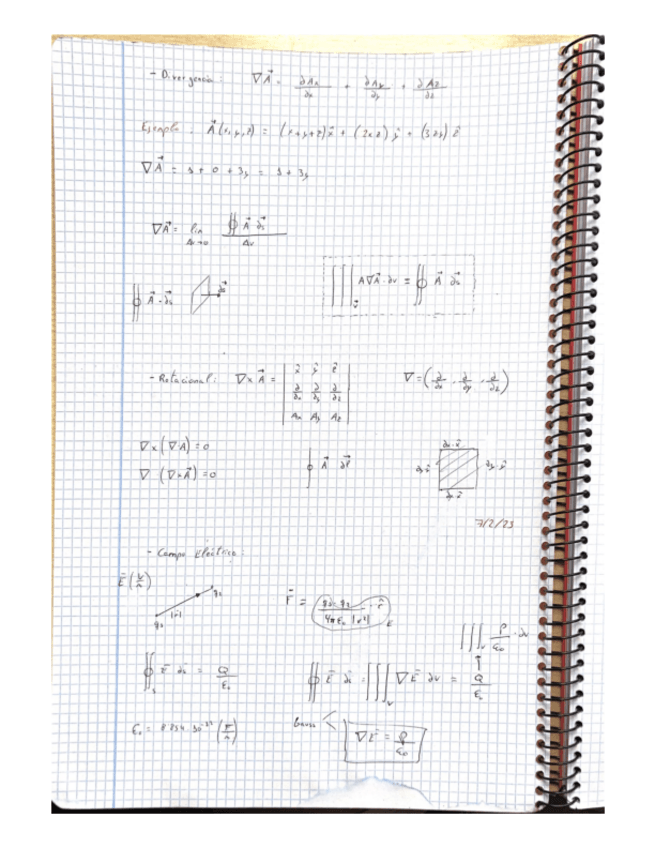 - Divergencia: ∇A⃗ = ∂Ax/∂x + ∂Ay/∂y + ∂Az/∂z
Ejemplo: A⃗(x,y,z) = (x+y+z)x̂ + (2xz)ŷ + (3zy)ẑ
∇A⃗ = 1 + 0 + 3y = 1 + 3y
∇A⃗ = lim Δv→0 ∯ A⃗ ds⃗ / Δv
∯ A⃗ · ds⃗
∭ A∇A⃗ · dv = ∯ A⃗ ds⃗
- Rotacional: ∇×A⃗ = | x̂ ŷ ẑ |
| ∂/∂x ∂/∂y ∂/∂z |
| Ax Ay Az |
∇ = (∂/∂x, ∂/∂y, ∂/∂z)
∇×(∇A) = 0
∇(∇×A⃗) = 0
∮ A⃗ dl⃗
7/2/23
- Campo Eléctrico:
E⃗ (V/m)
q1 |r⃗| q2
F⃗ = q1·q2 / 4πε0 |r²| · r̂ E
∯s E⃗ ds⃗ = Q/ε0
∯ E⃗ ds⃗ = ∭v ∇E⃗ dv = Q/ε0
∭v ρ/ε0 · dv
ε0 = 8'854·10⁻¹² (F/m)
Gauss < ∇E⃗ = ρ/ε0